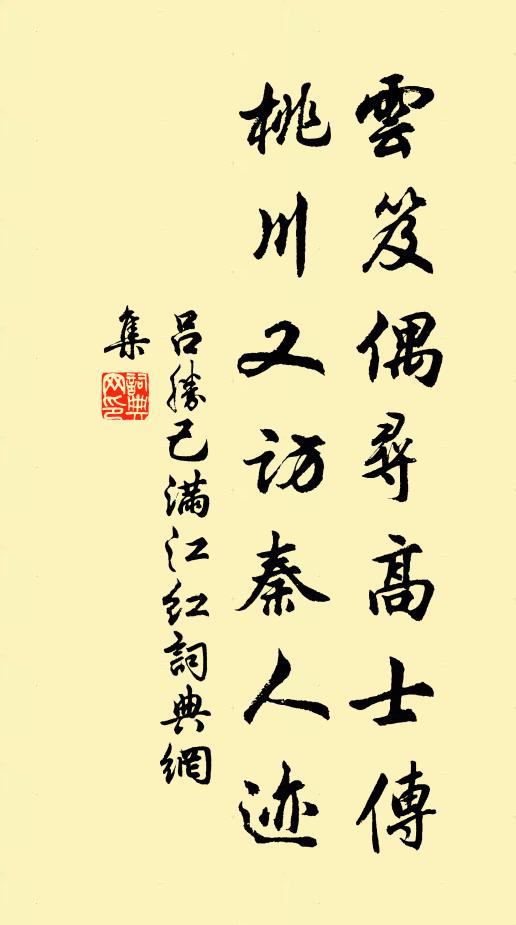 雲笈偶尋高士傳
桃川又訪秦人迹
吕勝己满江红詞典網
集
詞典网印